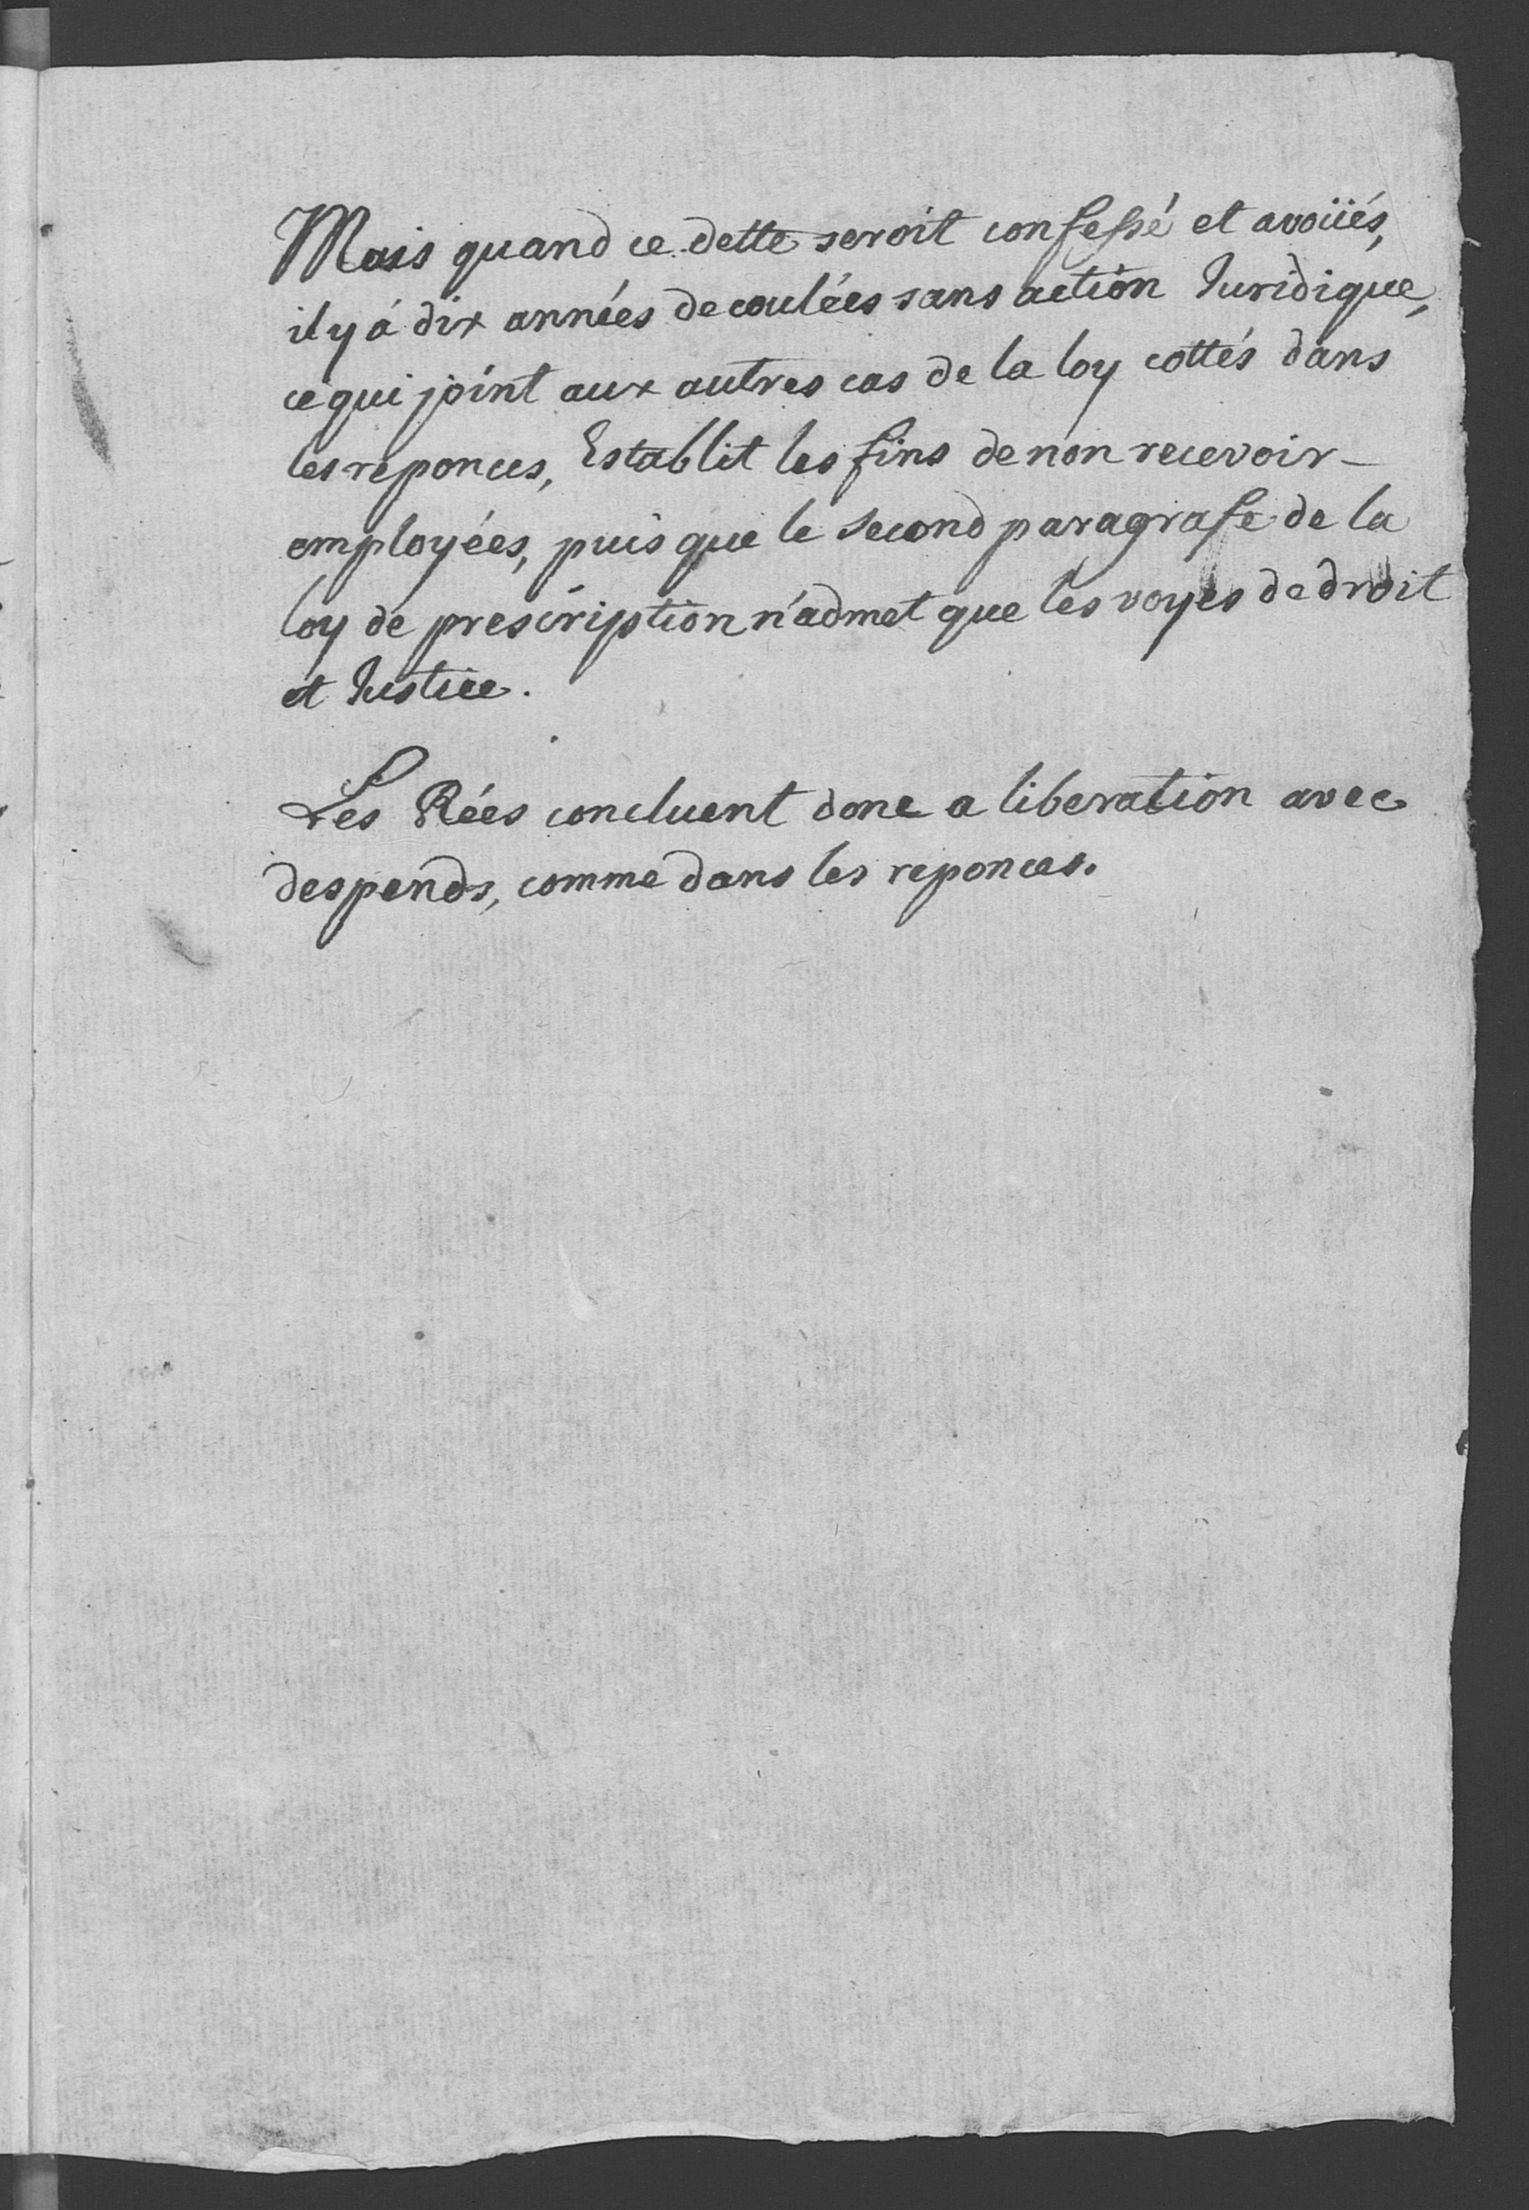 Mais quand ce dette seroit confessé et avoüés,
il y á dix années decoulées sans action Juridique,
ce qui joint aux autres cas de la loy cottés dans
les reponces, Establit les fins de non recevoir
employées, puis que le second paragrafe de la
loy de prescription n'admet que les voyes de droit
et Justice.
Les Rées concluent donc a liberation avec
despends, comme dans les reponces.